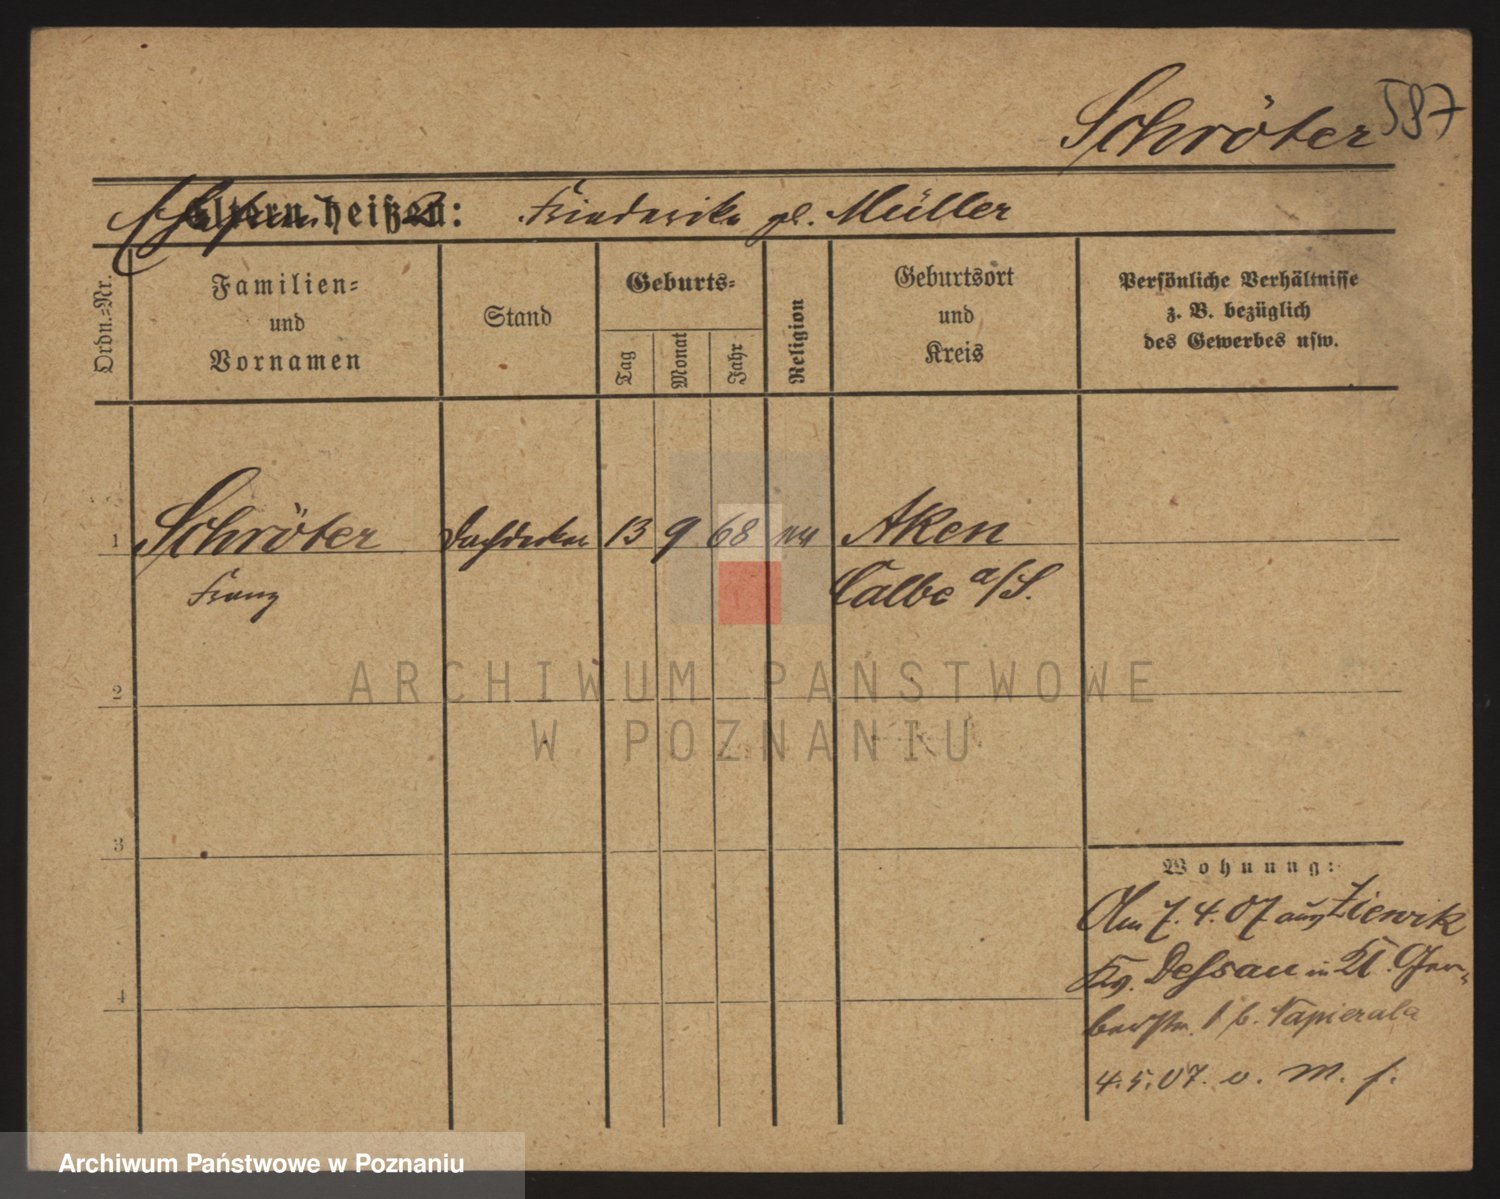 Schröter 587
Eltern heißen: Friederike gb. Müller
Ordn.-Nr.
Familien-
und
Vornamen
Stand
Geburts-
Tag
Monat
Jahr
Religion
Geburtsort
und
Kreis
Persönliche Verhältnisse
z. B. bezüglich
des Gewerbes usw.
1 Schröter Dachdecker 13 9 68 Aken
Franz Calbe a/S.
2
3
4
Wohnung:
Am 7. 4. 07 aus Ziewik
Kr. Dessau in Kl. Ger-
berstr. 1 b. Napierala
4. 5. 07. v. M. f.
ARCHIWUM PAŃSTWOWE
W POZNANIU
Archiwum Państwowe w Poznaniu